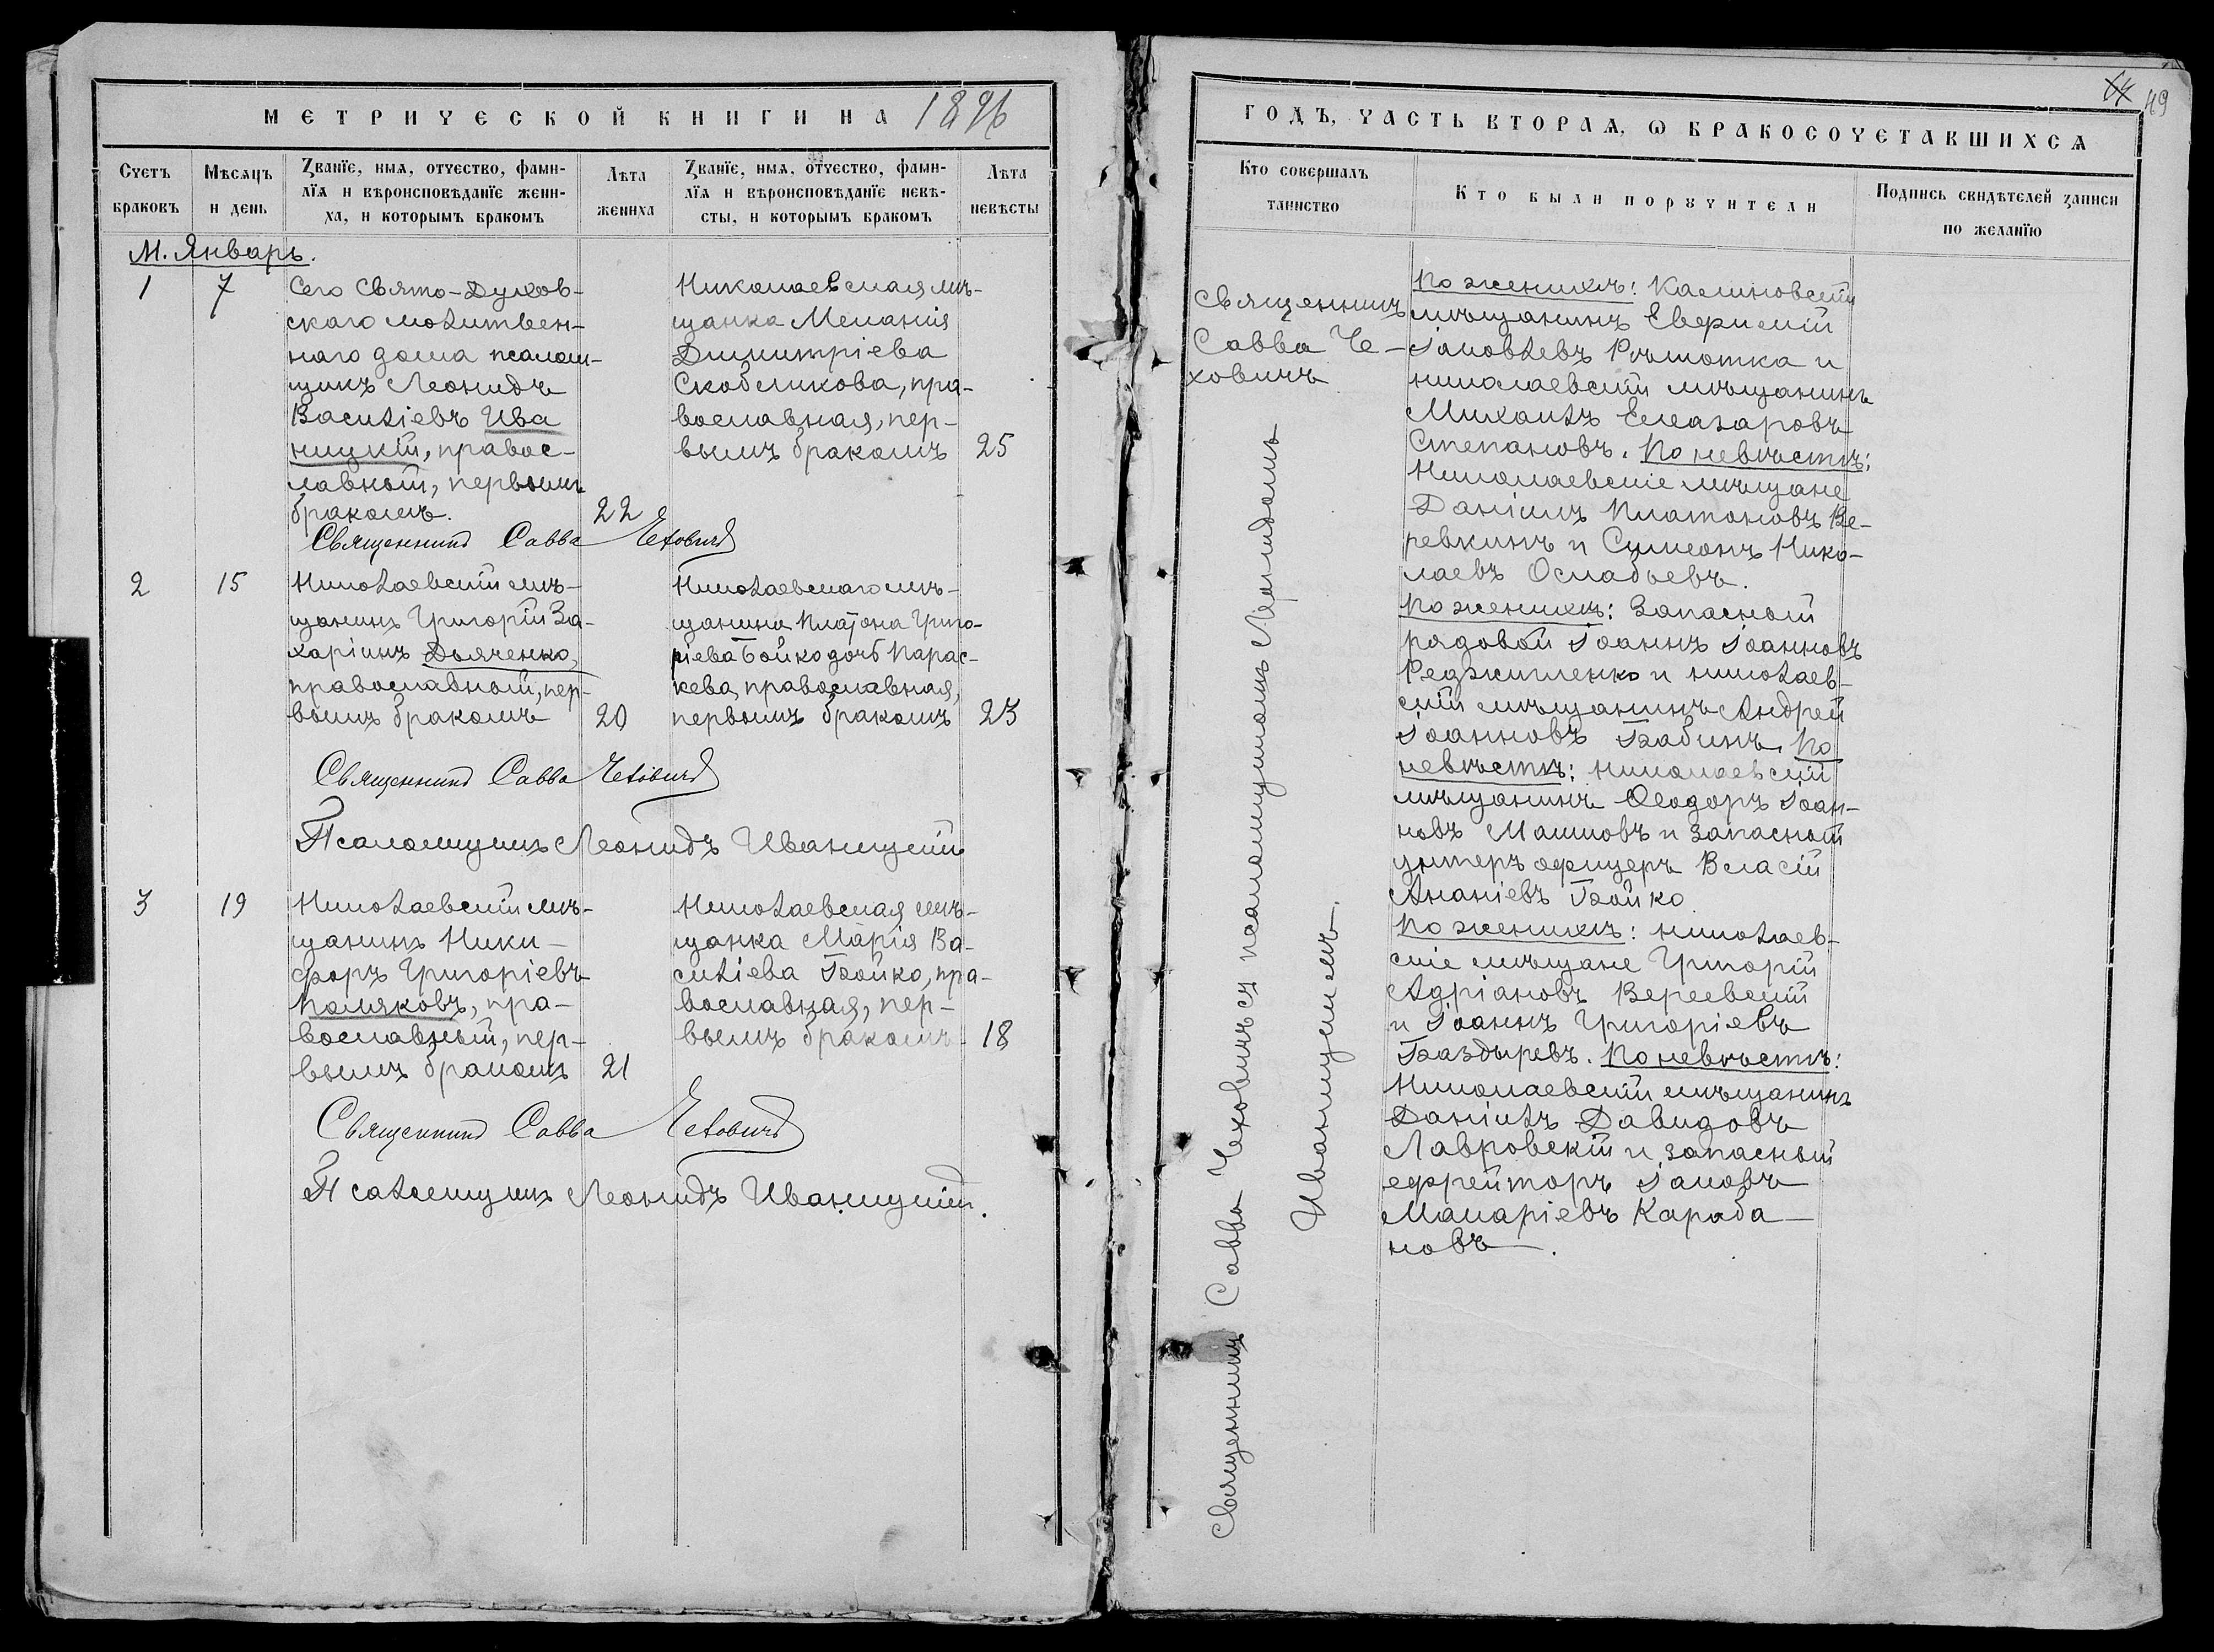 МЕТРИЧЕСКОЙ КНИГИ НА 1896
Счетъ браковъ
Мѣсяцъ и день
Званїе, имя, отчество, фами-
лїя и вѣроисповѣданїе жени-
ха, и которымъ бракомъ
Лѣта жениха
Званїе, имя, отчество, фами-
лїя и вѣроисповѣданїе невѣ-
сты, и которымъ бракомъ
Лѣта невѣсты
М. Январь.
1
7
Сего Свято-Духов-
скаго молитвен-
наго дома псалом-
щикъ Леонидъ
Василіевъ Ива
ницкій, правос-
лавный, первымъ
бракомъ.
22
Николаевская мѣ-
щанка Меланія
Димитріева
Скобликова, пра-
вославная, пер-
вымъ бракомъ
25
Священникъ Савва Чеховичъ
2
15
Николаевскій мѣ-
щанинъ Григорій За-
харіинъ Дьяченко,
православный, пер-
вымъ бракомъ
20
Николаевскаго мѣ-
щанина Платона Григо-
ріева Бойко дочь Парас-
кева, православная,
первымъ бракомъ
23
Священникъ Савва Чеховичъ
Псаломщикъ Леонидъ Иваницкій
3
19
Николаевскій мѣ-
щанинъ Ники-
форъ Григоріевъ
Поляковъ, пра-
вославный, пер-
вымъ бракомъ
21
Николаевская мѣ-
щанка Марія Ва-
силіева Бойко, пра-
вославная, пер-
вымъ бракомъ
18
Священникъ Савва Чеховичъ
Псаломщикъ Леонидъ Иваницкій.
64 49
ГОДЪ, ЧАСТЬ ВТОРАЯ, Ѡ БРАКОСОЧЕТАВШИХСЯ
Кто совершалъ
таинство
Кто были порꙋчители
Подпись свидѣтелей записи
по желанїю
Священникъ
Савва Че-
ховичъ
Священникъ Савва Чеховичъ съ псаломщикомъ Леонидомъ
Иваницкимъ.
По женихѣ: Калиновскій
мѣщанинъ Евфимій
Іаковлевъ и
николаевскій мѣщанинъ
Михаилъ Елеазаровъ
Степановъ. По невѣстѣ:
Николаевскіе мѣщане
Даніилъ Платоновъ Ве-
ревкинъ и Симеонъ Нико-
лаевъ Ослабьевъ.
По женихѣ: Запасный
рядовой Іоаннъ Іоанновъ
и николаев-
скій мѣщанинъ Андрей
Іоанновъ Бабинъ. По
невѣстѣ: николаевскій
мѣщанинъ Ѳеодоръ Іоан-
новъ и запасный
унтеръ офицеръ Власій
Ананіевъ Бойко.
По женихѣ: николаев-
скіе мѣщане Григорій
Адріановъ Вереевскій
и Іоаннъ Григоріевъ
Баздыревъ. По невѣстѣ:
Николаевскій мѣщанинъ
Даніилъ Давидовъ
Лавровскій и запасный
ефрейторъ Іаковъ
Макаріевъ Караба-
новъ.